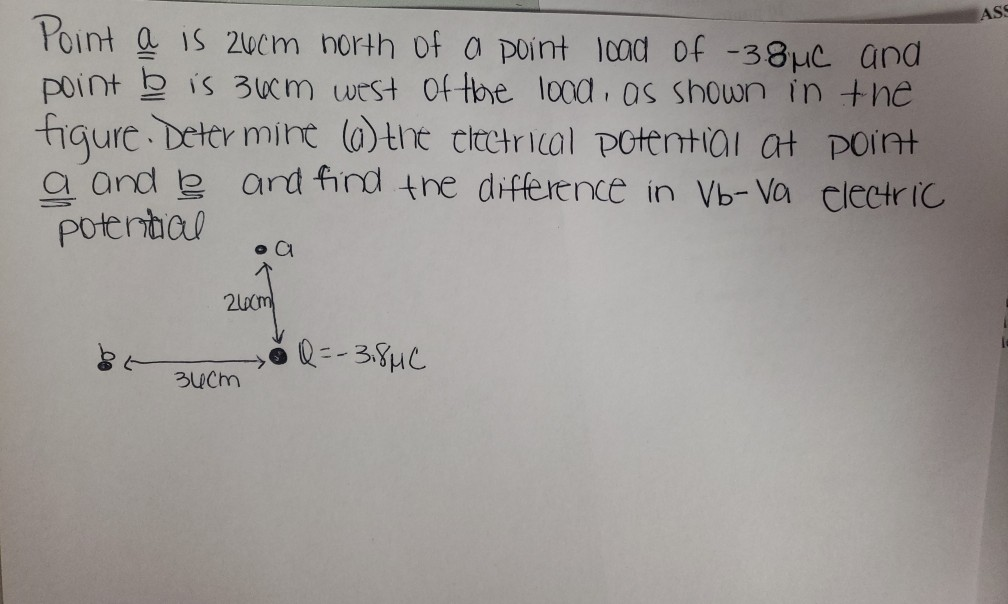 ASS
Point a is 26cm north of a point load of -3.8μC and
point b is 36cm west of the load, as shown in the
figure. Determine (a) the electrical potential at point
a and b and find the difference in Vb-Va electric
potential
• a
26cm
b
Q=-3.8μC
36cm